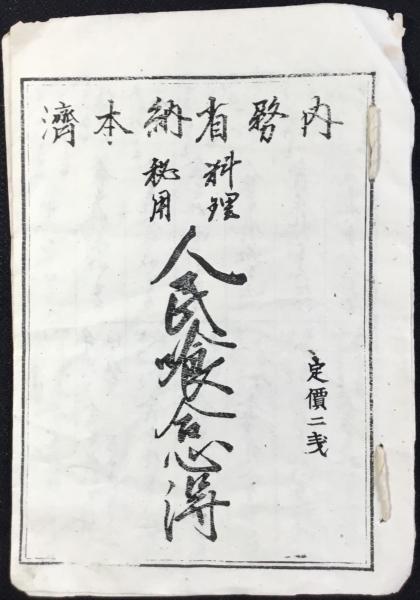 内務省納本濟
料理
秘用
人民喰合心得
定價二戔